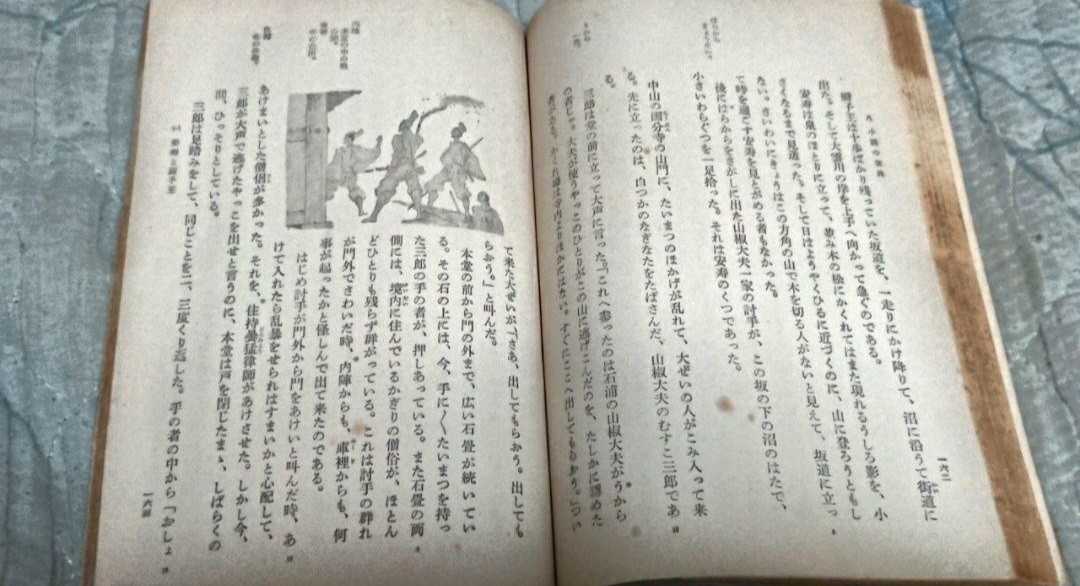 一六二
厨子王は十歩ばかり残っていた坂道を、一走りにかけ降りて、沼に沿うて街道に
出た。そして大雲川の岸を上手へ向かって急ぐのである。
安寿は泉のほとりに立って、並み木の松にかくれてはまた現れるうしろ影を、小
さくなるまで見送った。そして日はようやくひるに近づくのに、山に登ろうともし
ない。さいわいにきょうはこの方角の山で木を切る人がないと見えて、坂道に立っ
て時を過ごす安寿を見とがめる者もなかった。
後にはらからをさがしに出た山椒大夫一家の討手が、この坂の下の沼のはたで、
小さいわらぐつを一足拾った。それは安寿のくつであった。
中山の国分寺の山門に、たいまつのほかげが乱れて、大ぜいの人がこみ入って来
る。先に立ったのは、白つかのなぎなたをたばさんだ、山椒大夫のむすこ三郎であ
る。
三郎は堂の前に立って大声に言った。「これへ参ったのは石浦の山椒大夫がうから
の者じゃ。大夫が使うやっこのひとりがこの山に逃げこんだのを、たしかに認めた
者がある。かくれ場は寺内よりほかにはない。すぐにここへ出してもらおう。」つい
はらから
うから
て来た大ぜいが、「さあ、出してもらおう。出しても
らおう。」と叫んだ。
本堂の前から門の外まで、広い石畳が続いてい
る。その石の上には、今、手に〳〵たいまつを持っ
た三郎の手の者が、押しあっている。また石畳の両
側には、境内に住んでいるかぎりの僧俗が、ほとん
どひとりも残らず群がっている。これは討手の群れ
が門外でさわいだ時、内陣からも、庫裡からも、何
事が起ったかと怪しんで出て来たのである。
はじめ討手が門外から門をあけいと叫んだ時、あ
けて入れたら乱暴をせられはすまいかと心配して、
あけまいとした僧侶が多かった。それを、住持曇猛律師があけさせた。しかし今、
三郎が大声で逃げたやっこを出せと言うのに、本堂は戸を閉じたまゝ、しばらくの
間、ひっそりとしている。
三郎は足踏みをして、同じことを二、三度くり返した。手の者の中から「おしょ
内陣
庫裡
住持